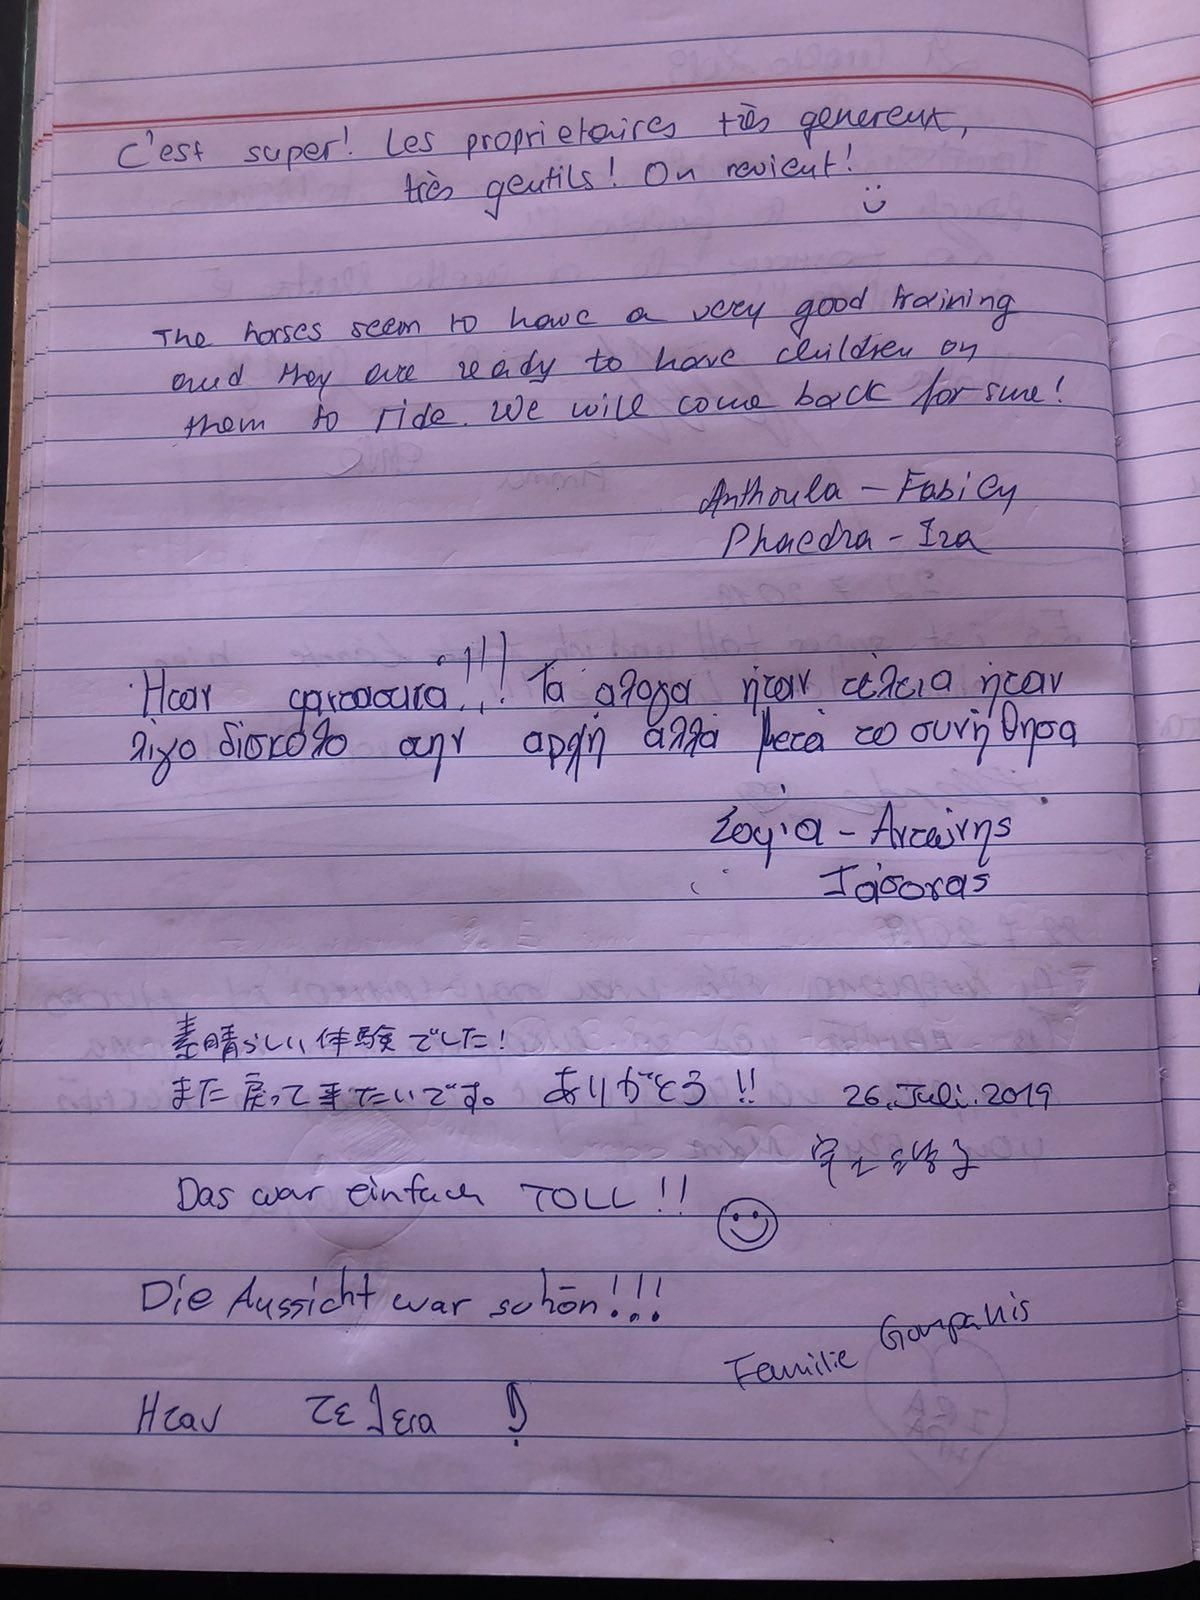 C'est super! Les proprietaires très genereux,
très gentils! On revient!
The horses seem to have a very good training
and they are ready to have children on
them to ride. We will come back for sure!
Anthoula - Fabien
Phaedra - Ira
Ηταν φαντασtικα!!! Τα αλογα ήταν τέλεια ήταν
λιγο δίσκολο στην αρχή αλλά μετά το συνήθησα
Σοφία - Αντώνης
Ιάσονας
素晴らしい体験でした!
また戻って来たいです。 ありがとう!! 26. Juli. 2019
Das war einfach TOLL!!
Die Aussicht war schön!!!
Familie
Ηταν τελεια !